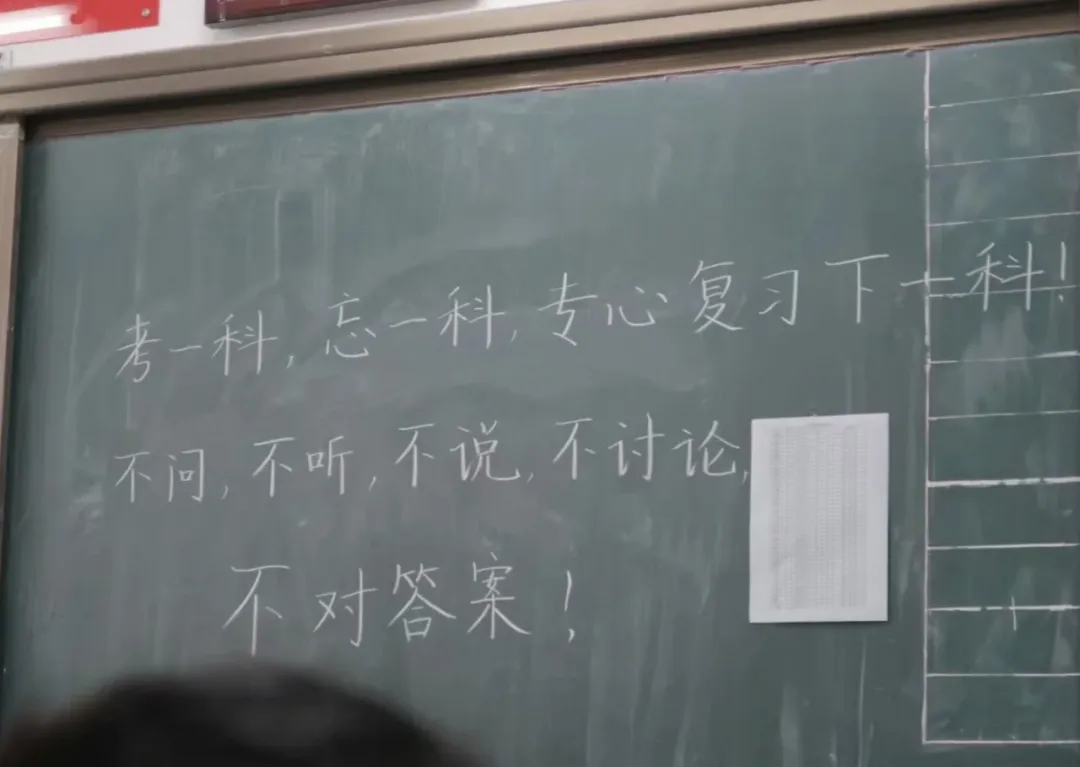 考一科,忘一科,专心复习下一科!
不问,不听,不说,不讨论,
不对答案!